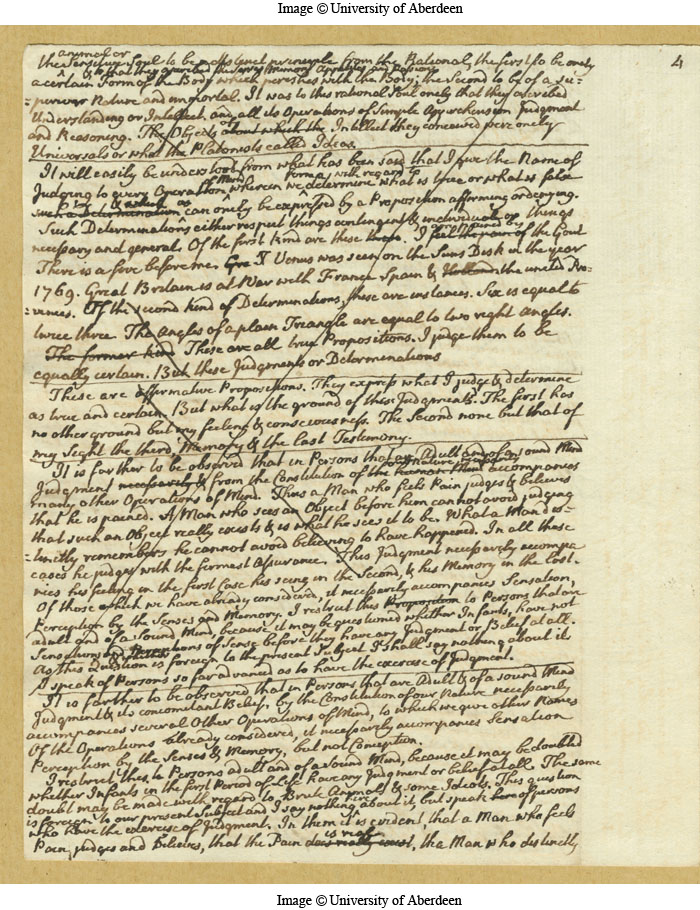 Image © University of Aberdeen
4
animal or
the Sensitive Soul to be a distinct principle from the Rational, the first to be onely
& to that they ascribed the Senses Memory Appetites and Passions
a certain Form of the Body which perishes with the Body; the Second to be of a su-
-periour Nature and immortal. It was to this rational Soul onely that they ascribed
Understanding or Intellect, and all its Operations of Simple Apprehension Judgment
and Reasoning. The Objects about which the Intellect they conceived were onely
Universals or what the Platonists called Ideas.
It will easily be understood from what has been said that I give the Name of
Judging to every Operation of Mind wherein we determine with regard to what is true or what is false
such a Determination can onely be expressed by a Proposition affirming or denying.
Such Determinations either respect things contingent & individual or things
necessary and general. Of the first kind are these. I feel the pain of the Gout
There is a fire before me. Venus was seen on the Suns Disk in the year
1769. Great Britain is at War with France Spain & Holland the united Pro-
-vinces. Of the second kind of Determinations, these are instances. Six is equal to
twice three. The Angles of a plain Triangle are equal to two right Angles.
The former kind These are all true Propositions. I judge them to be
equally certain. But these Judgments or Determinations
These are affirmative Propositions. They express what I judge & determine
as true and certain. But what is the ground of these Judgments. The first has
no other ground but my feeling & consciousness. The Second none but that of
my Sight the third, Memory & the last Testimony.
It is farther to be observed that in Persons that are Adult and of a sound Mind
Judgment necessarily & from the Constitution of the human Mind accompanies
many other Operations of Mind. Thus a Man who feels Pain judges & believes
that he is pained. A Man who sees an Object before him cannot avoid judging
that such an Object really exists & is what he sees it to be. What a Man dis-
-tinctly remembers he cannot avoid believing to have happened. In all these
cases he judges with the firmest Assurance. This Judgment necessarily accompa
nies his feeling in the first Case his seeing in the Second, & his Memory in the last.
Of those which we have already considered, it necessarily accompanies Sensation,
Perception by the Senses and Memory. I restrict this Proposition to Persons that are
adult and of a sound Mind, because it may be questioned whether Infants, have not
Sensations of Sense before they have any Judgment or Belief at all.
As this Question is foreign to the present Subject I shall say nothing about it
I speak of Persons so far advanced as to have the exercise of Judgment.
It is farther to be observed that in Persons that are Adult & of a sound Mind
Judgment & its concomitant Belief, by the Constitution of our Nature necessarily
accompanies several Other Operations of Mind, to which we give other Names
Of the Operations already considered, it necessarily accompanies Sensation
Perception by the Senses & Memory, but not Conception.
I restrict this, to Persons adult and of a Sound Mind, because it may be doubted
whether Infants in the first Period of Life have any Judgment or belief at all. The same
doubt may be made with regard to Brute Animals & some Idiots. This question
is foreign to our present Subject and I say nothing here about it, but speak of persons
who have the exercise of Judgment. In them it is evident, that a Man who feels
Pain, judges and believes, that the Pain does really exist, is real the a Man who distinctly
Image © University of Aberdeen